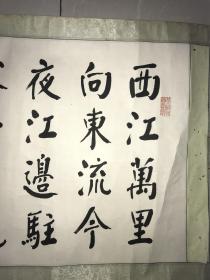 西江萬里
向東流今
夜江邊駐